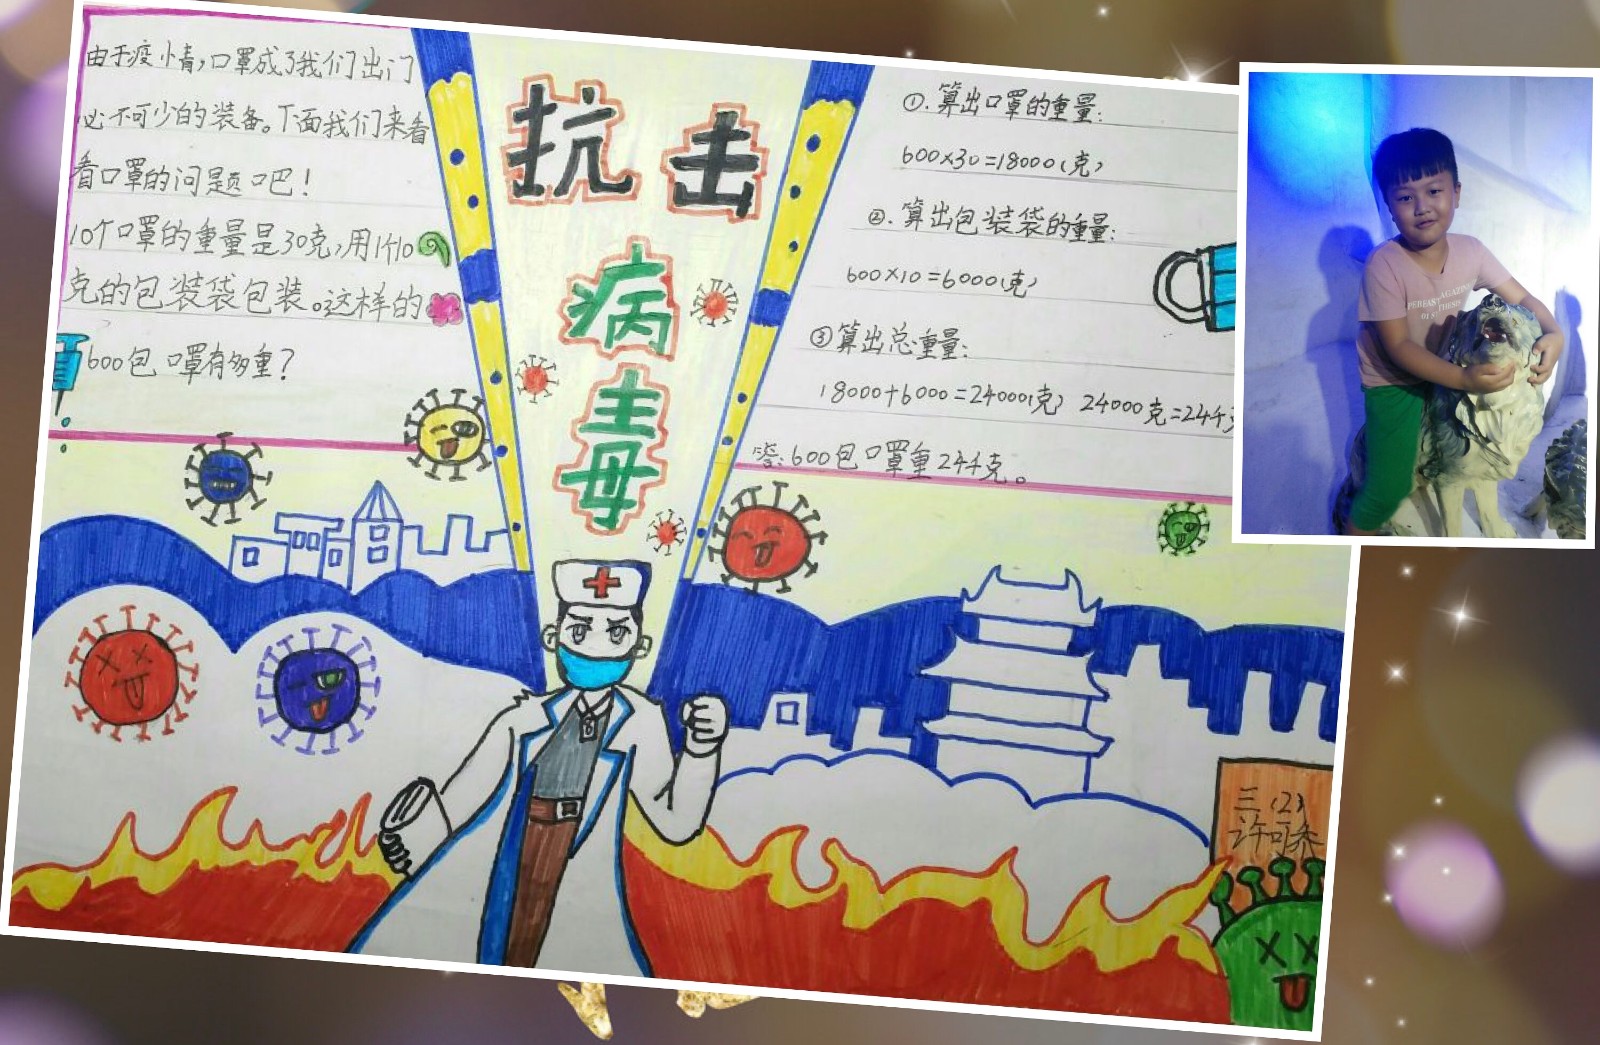 由于疫情,口罩成了我们出门
必不可少的装备。下面我们来看
看口罩的问题吧!
10个口罩的重量是30克,用1个10
克的包装袋包装。这样的
600包口罩有多重?
抗击
病
毒
①.算出口罩的重量:
600×30=18000(克)
②.算出包装袋的重量:
600×10=6000(克)
③算出总重量:
18000+6000=24000(克) 24000克=24千克
答:600包口罩重24千克。
三(2)
许可